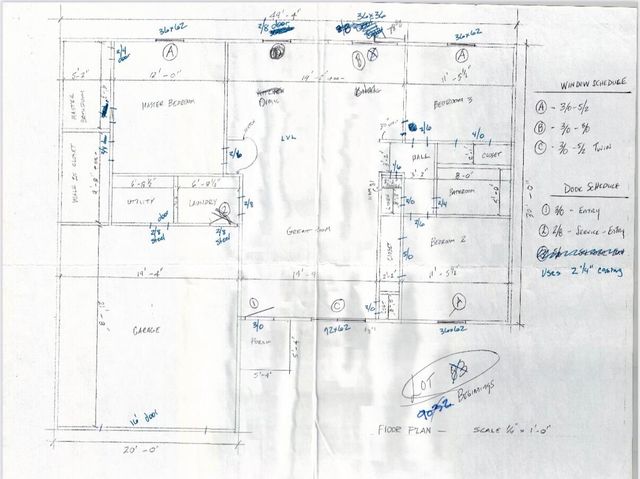 49'-4"
36x62
2/8 door
36x36
36x62
A
B
A
2/4 door
5'-2"
12'-0"
11'-5½"
MASTER BATHROOM
MASTER BEDROOM
KITCHEN
DINING
BEDROOM 3
LVL
2/6
4/0
WALK IN CLOSET
2/6
HALL
CLOSET
3'-2"
8'-0"
BATHROOM
LINEN
UTILITY
LAUNDRY
2/8
2
2/0
2/4
door
2/8 steel
2/8 steel
GREAT ROOM
2/6
CLOSET
5/0
BEDROOM 2
19'-4"
11'-5½"
1
C
3/0
A
3/0
72x62
36x62
PORCH
5'-4"
5'-4"
GARAGE
16' door
20'-0"
30'-0"
WINDOW SCHEDULE
A - 3/0-5/2
B - 3/0 -
C - 3/0-5/2 TWIN
DOOR SCHEDULE
1 3/0 - ENTRY
2 2/8 - SERVICE-ENTRY
USES 2 ¼" casing
LOT
9032 BEGINNINGS
FLOOR PLAN - SCALE ¼" = 1'-0"